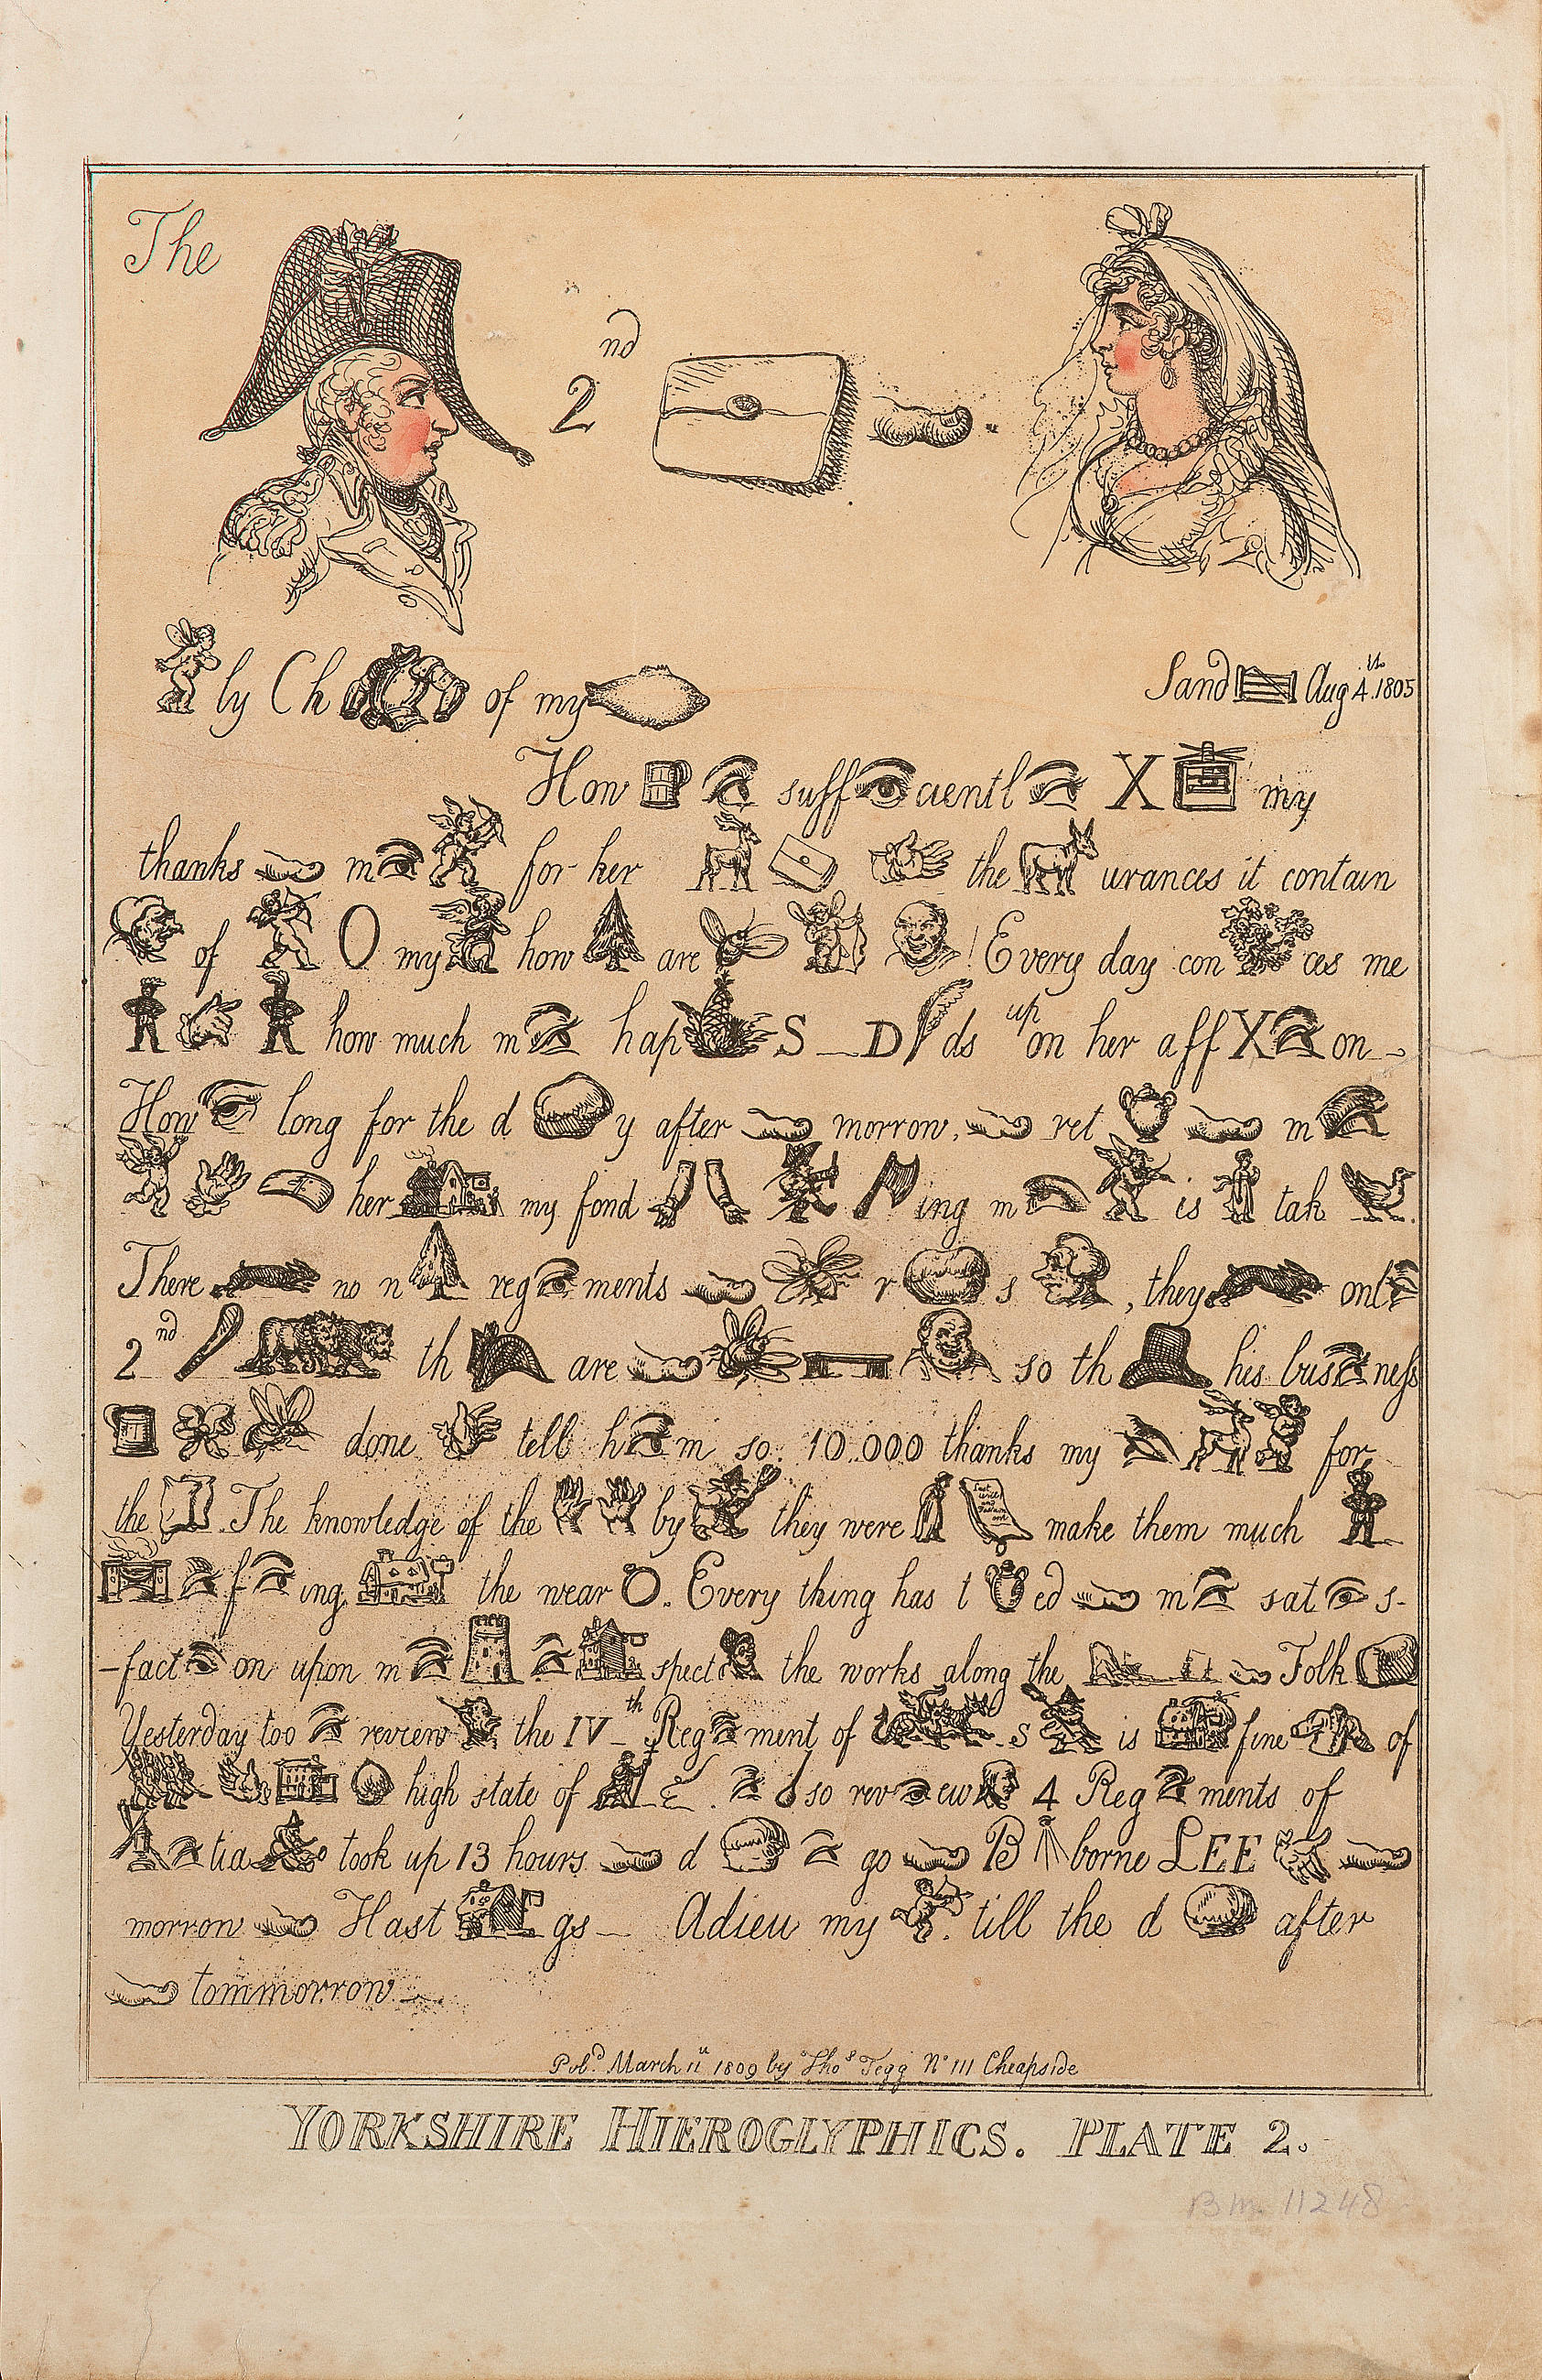 The
2nd
ly Ch of my
Sand Aug 4th. 1805
How suff cientl X my
thanks m for her the urances it contain
of O my how are ! Every day con ces me
how much m hap S D ds upon her aff X on
How long for the d y after morrow, ret m
her my fond ing m is tak
There no n reg ments r s , they onl
2nd th are so th his bus ness
done tell h m so. 10.000 thanks my for
the . The knowledge of the by they were make them much
f ing the wear O. Every thing has t ed m sat s-
-fact on upon m spect the works along the Folk
Yesterday too review the IV th Reg ment of s is fine of
high state of . so rev ew 4 Reg ments of
tia took up 13 hours. d go B borne LEE
morrow Hast gs Adieu my . till the d after
tommorrow
Pubd. March 11th 1809 by Thos Tegg No 111 Cheapside
YORKSHIRE HIEROGLYPHICS. PLATE 2.
B.M. 11248